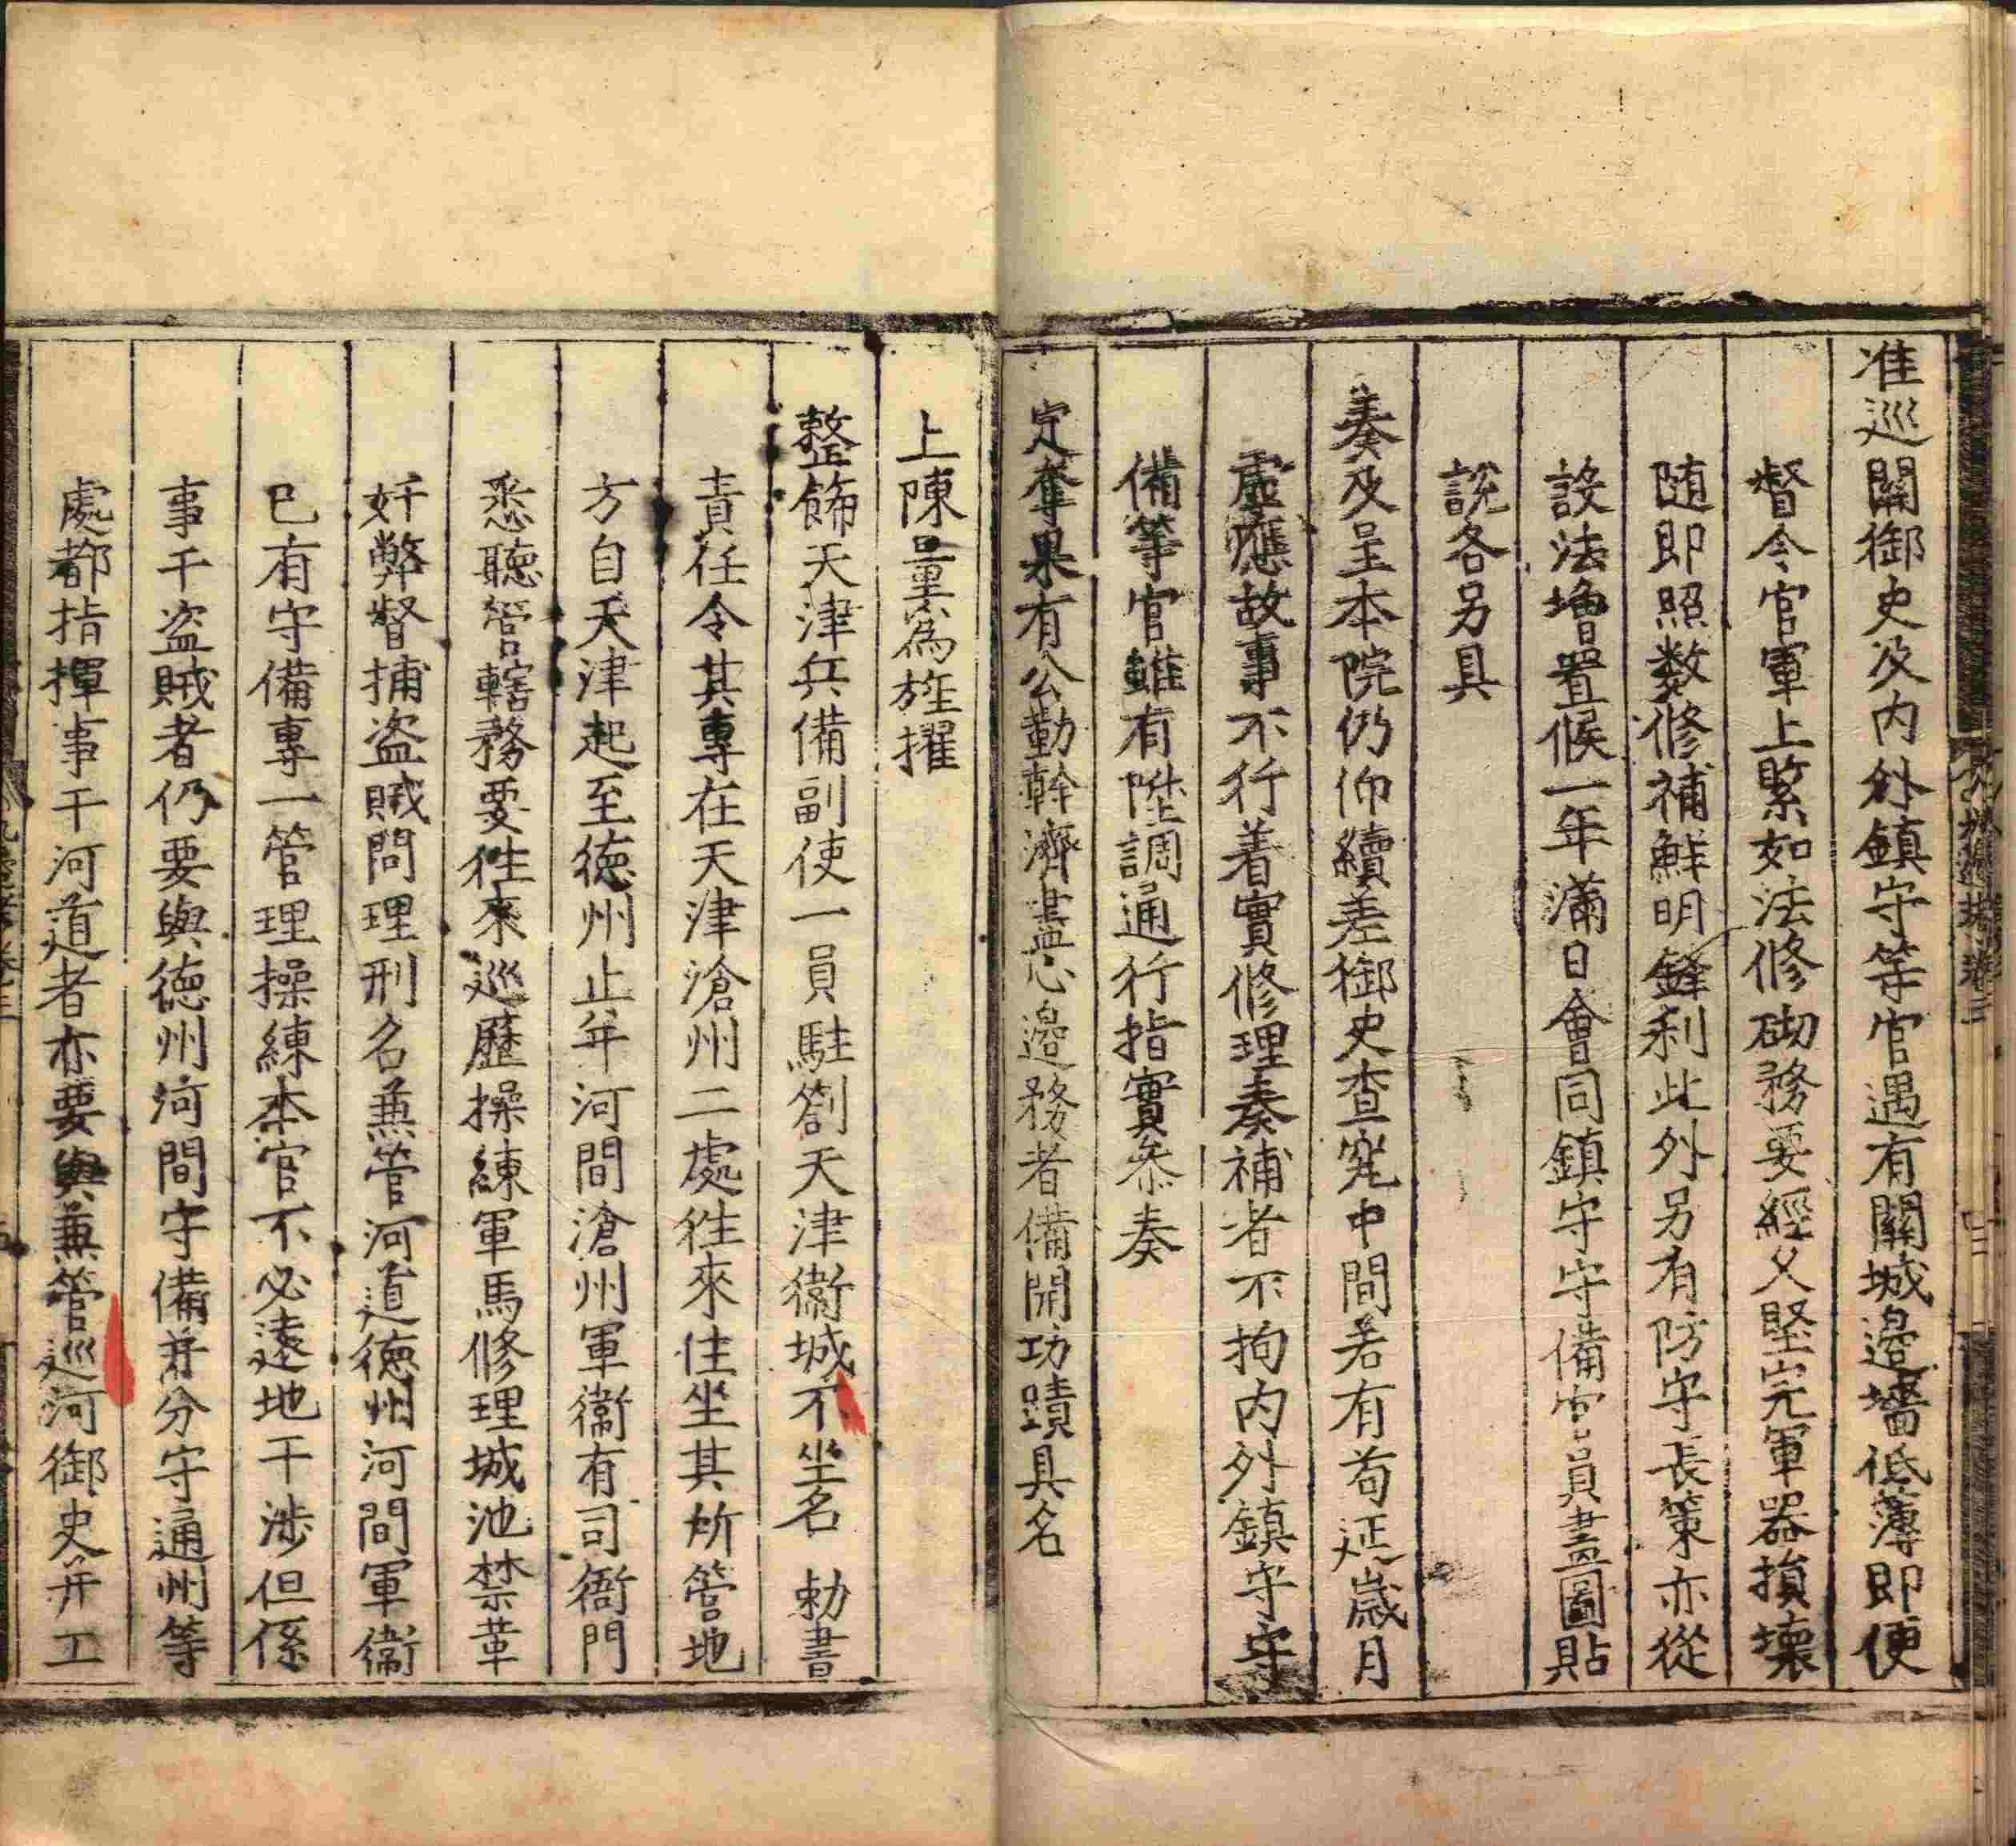 准巡關御史及内外鎮守等官遇有關城邊墻低薄即便
督令官軍上緊如法修砌務要經久堅完軍器損壞
随即照数修補鮮明鋒利此外另有防守長策亦從
設法增置候一年滿日會同鎮守守備官員畫圖貼
說各另具
奏及呈本院仍仰續差御史查究中間若有苟延歲月
虛應故事不行着實修理奏補者不拘内外鎮守守
備等官雖有陞調通行指實叅奏
定奪果有公勤幹濟盡心邊務者備開功蹟具名
上陳量爲旌擢
整飾天津兵備副使一員駐劄天津衞城不坐名 勅書
責任令其專在天津滄州二處徃來住坐其所管地
方自天津起至德州止并河間滄州軍衞有司衙門
悉聽管轄務要徃來巡歷操練軍馬修理城池禁革
奸弊督捕盗賊問理刑名兼管河道德州河間軍衞
已有守備專一管理操練本官不必遠地干涉但係
事干盗賊者仍要與德州河間守備并分守通州等
處都指揮事干河道者亦要與兼管巡河御史并工